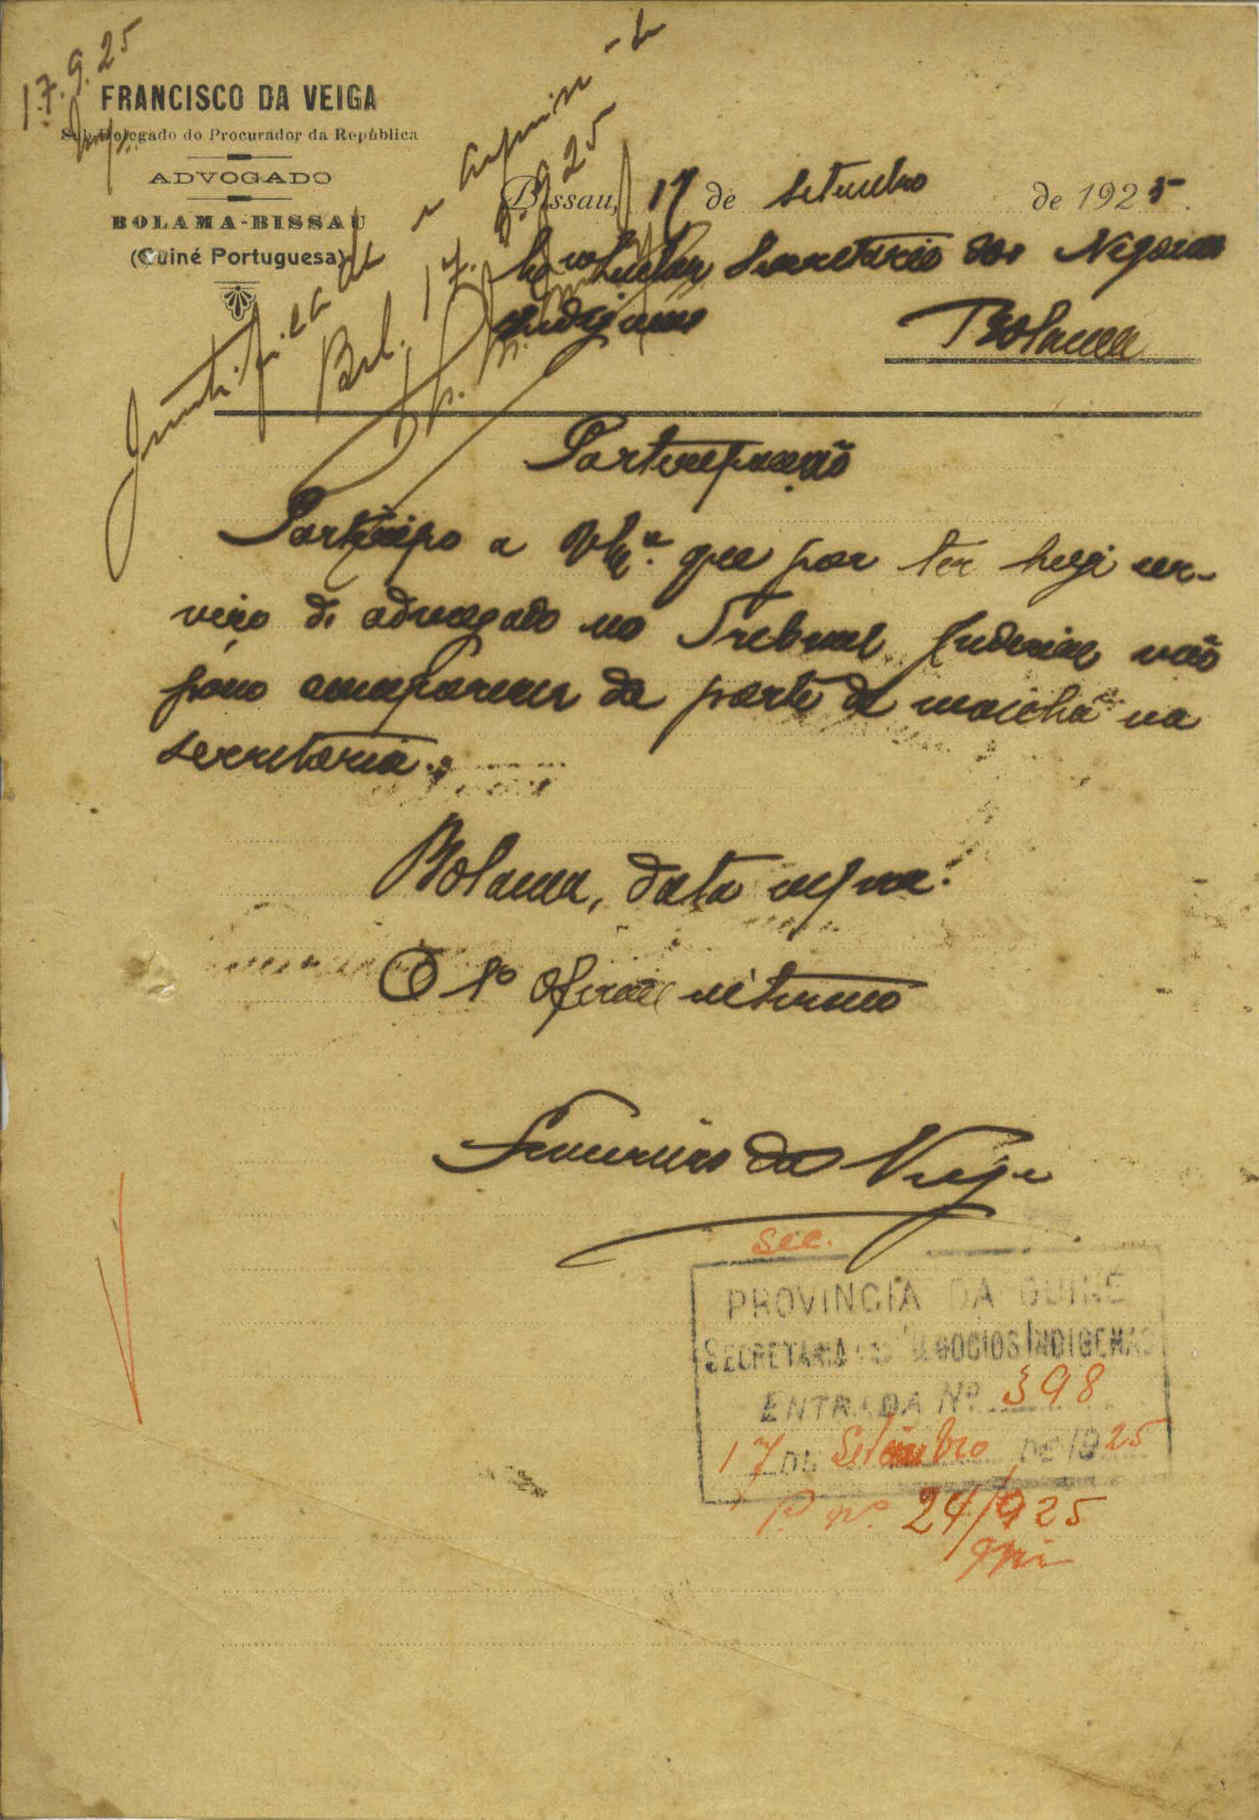 17.9.25
FRANCISCO DA VEIGA
Sub-Delegado do Procurador da República
ADVOGADO
BOLAMA-BISSAU
(Guiné Portuguesa)
Bissau, 17 de Setembro de 1925.
Secretário dos Negocios
Indigenas
Bolama
Justificada a
Bol. 17.9.925
Participação
Participo a V. Ex.ª que por ter hoje ser-
viço de advogado no Tribunal Judicial não
posso comparecer da parte da manhã na
secretaria.
Bolama, data supra.
O 1º Oficial interino
Francisco da Veiga
Sec.
PROVINCIA DA GUINÉ
SECRETARIA DOS NEGOCIOS INDIGENAS
ENTRADA Nº 398
17 DE Setembro DE 1925
P. nº 24/925